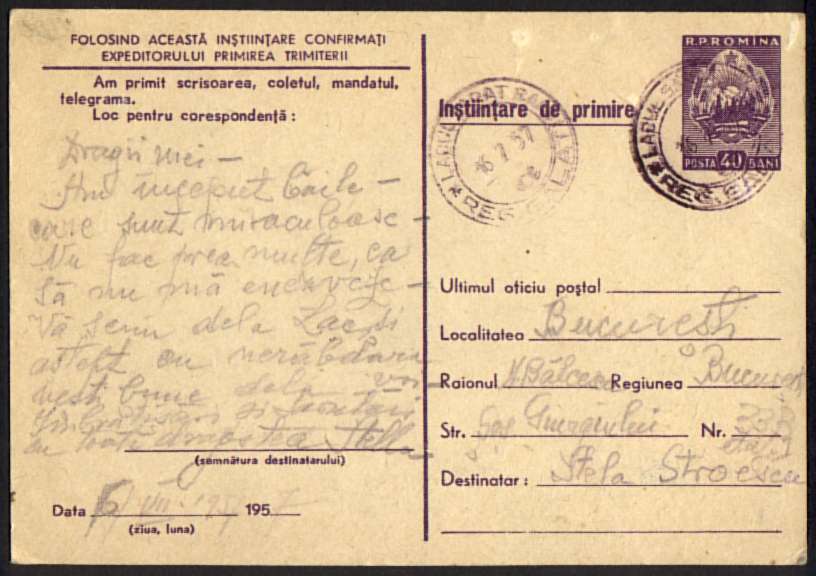 FOLOSIND ACEASTĂ INȘTIINȚARE CONFIRMAȚI
EXPEDITORULUI PRIMIREA TRIMITERII
Am primit scrisoarea, coletul, mandatul,
telegrama.
Loc pentru corespondență :
Dragii mei –
Am început băile –
care sunt miraculoase –
Nu fac prea multe, ca
să nu mă enerveze –
Vă scriu dela Lac și
aștept cu nerăbdare
vești bune dela voi –
și
cu toată dragostea Stella
(semnătura destinatarului)
Data 6/VII 195 7
(ziua, luna)
R.P.ROMINA
POSTA 40 BANI
LACUL SĂRAT RAION
16 7 57
REG. GALAȚI
LACUL SĂRAT
REG. GALAȚI
Inștiințare de primire
Ultimul oficiu poștal
Localitatea București
Raionul N. Bălcescu Regiunea București
Str. Șos Giurgiului Nr. 333
Destinatar : Stela Stroescu